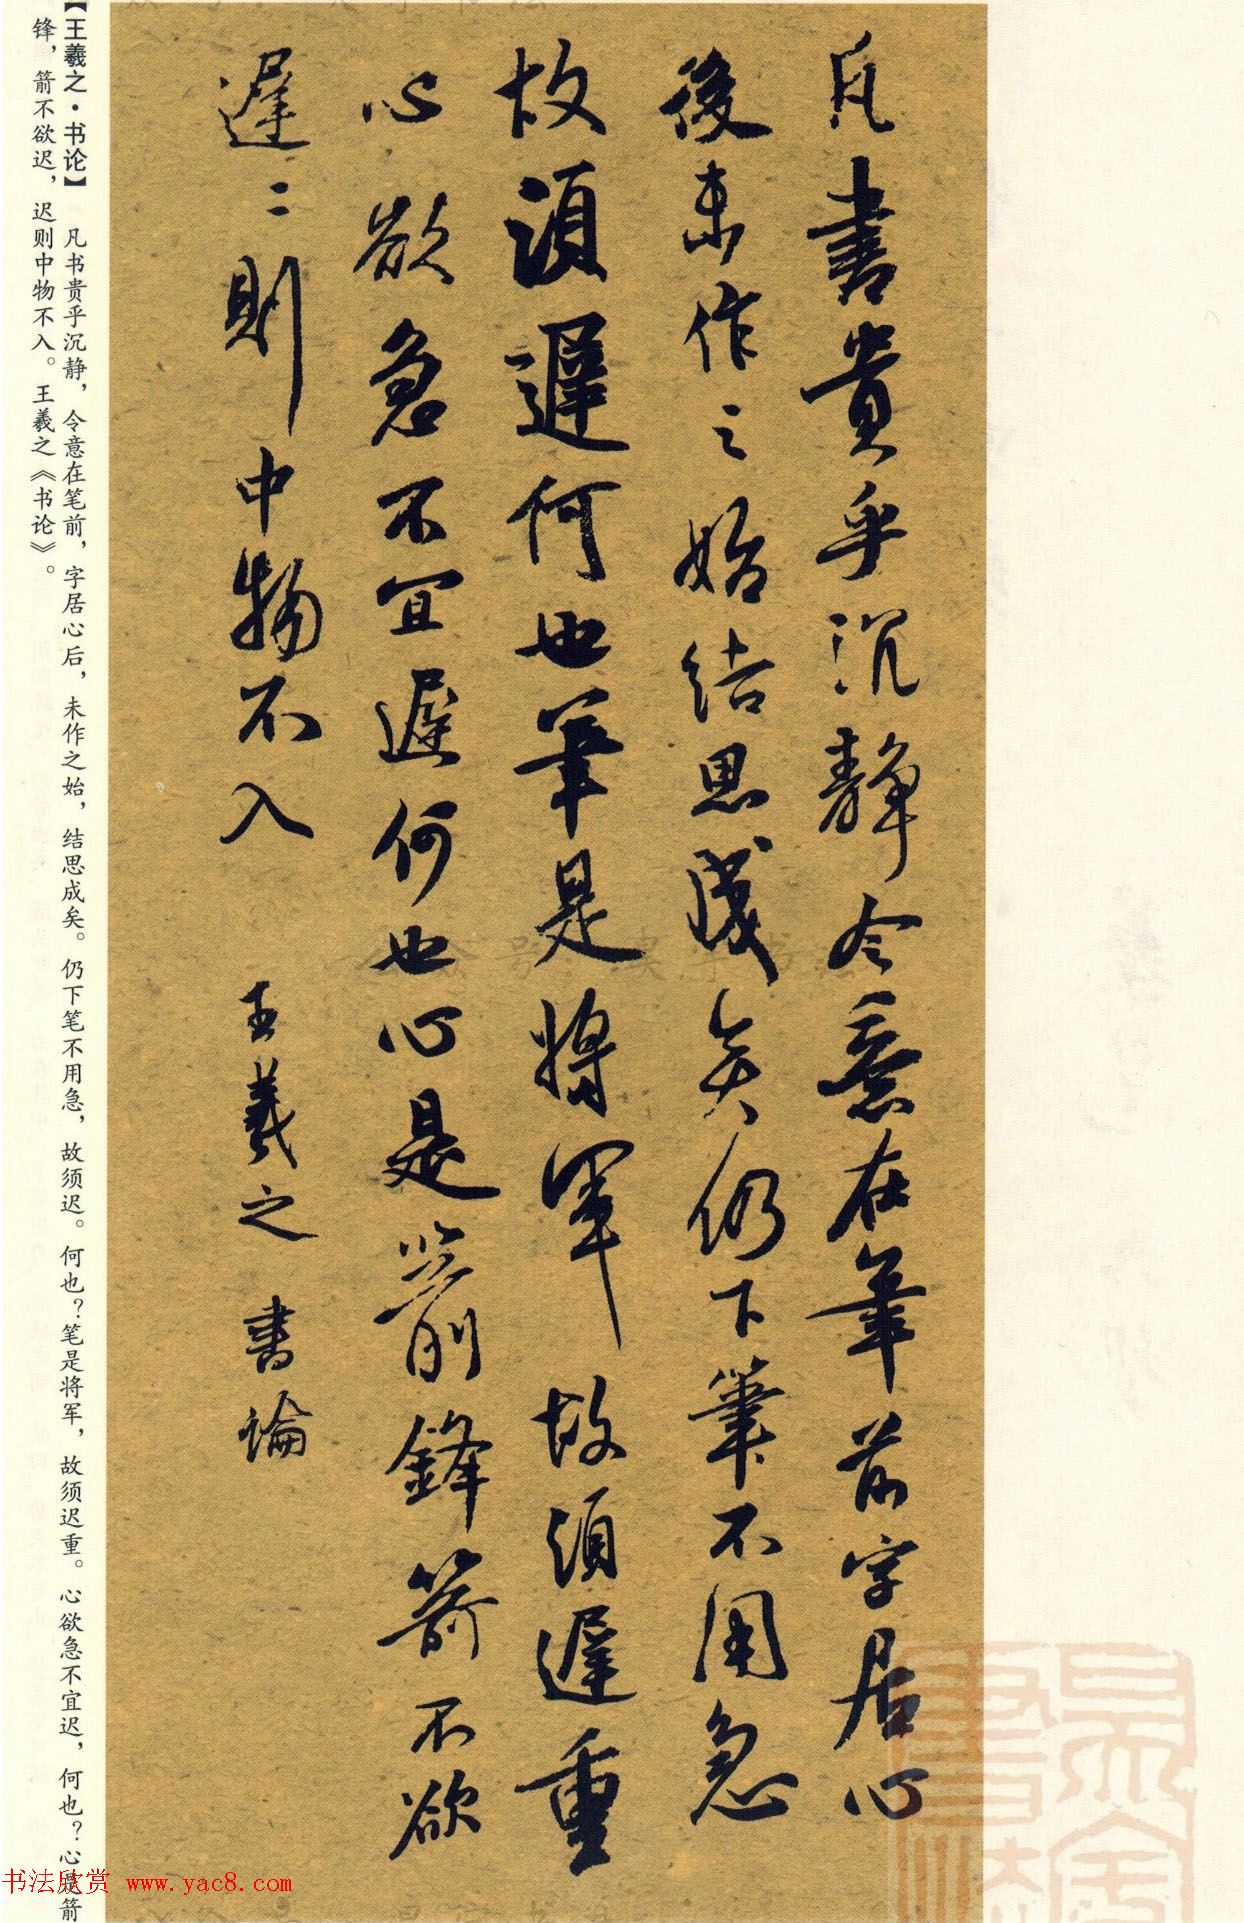 凡書貴乎沉静令意在筆前字居心
後未作之始结思成矣仍下筆不用急
故須遲何也筆是将軍故須遲重
心欲急不宜遲何也心是箭鋒箭不欲
遲〻則中物不入 王羲之 書論
【王羲之·书论】 凡书贵乎沉静，令意在笔前，字居心后，未作之始，结思成矣。仍下笔不用急，故须迟。何也？笔是将军，故须迟重。心欲急不宜迟，何也？心是箭
锋，箭不欲迟，迟则中物不入。王羲之《书论》。
书法欣赏 www.yac8.com